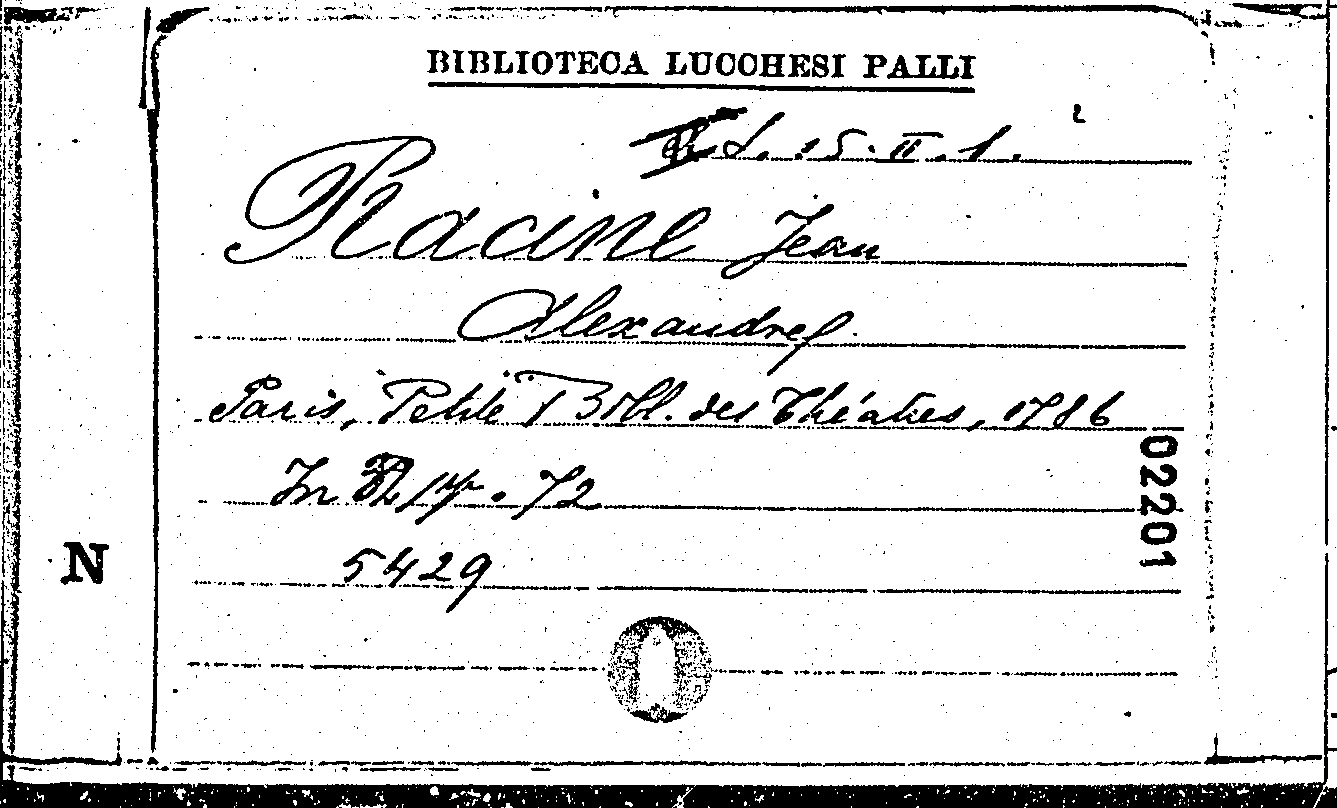 BIBLIOTECA LUCCHESI PALLI
L. 15. II. 1. 2
Racine Jean
Alexandre
Paris, Petite Bibl. des Théatres, 1786
In pp. 72
5429
02201
N